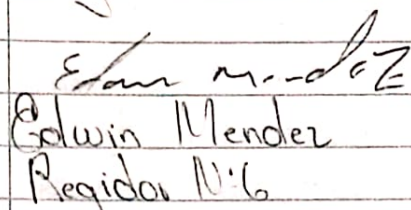 Edwin Mendez
Edwin Mendez
Regidor N:6